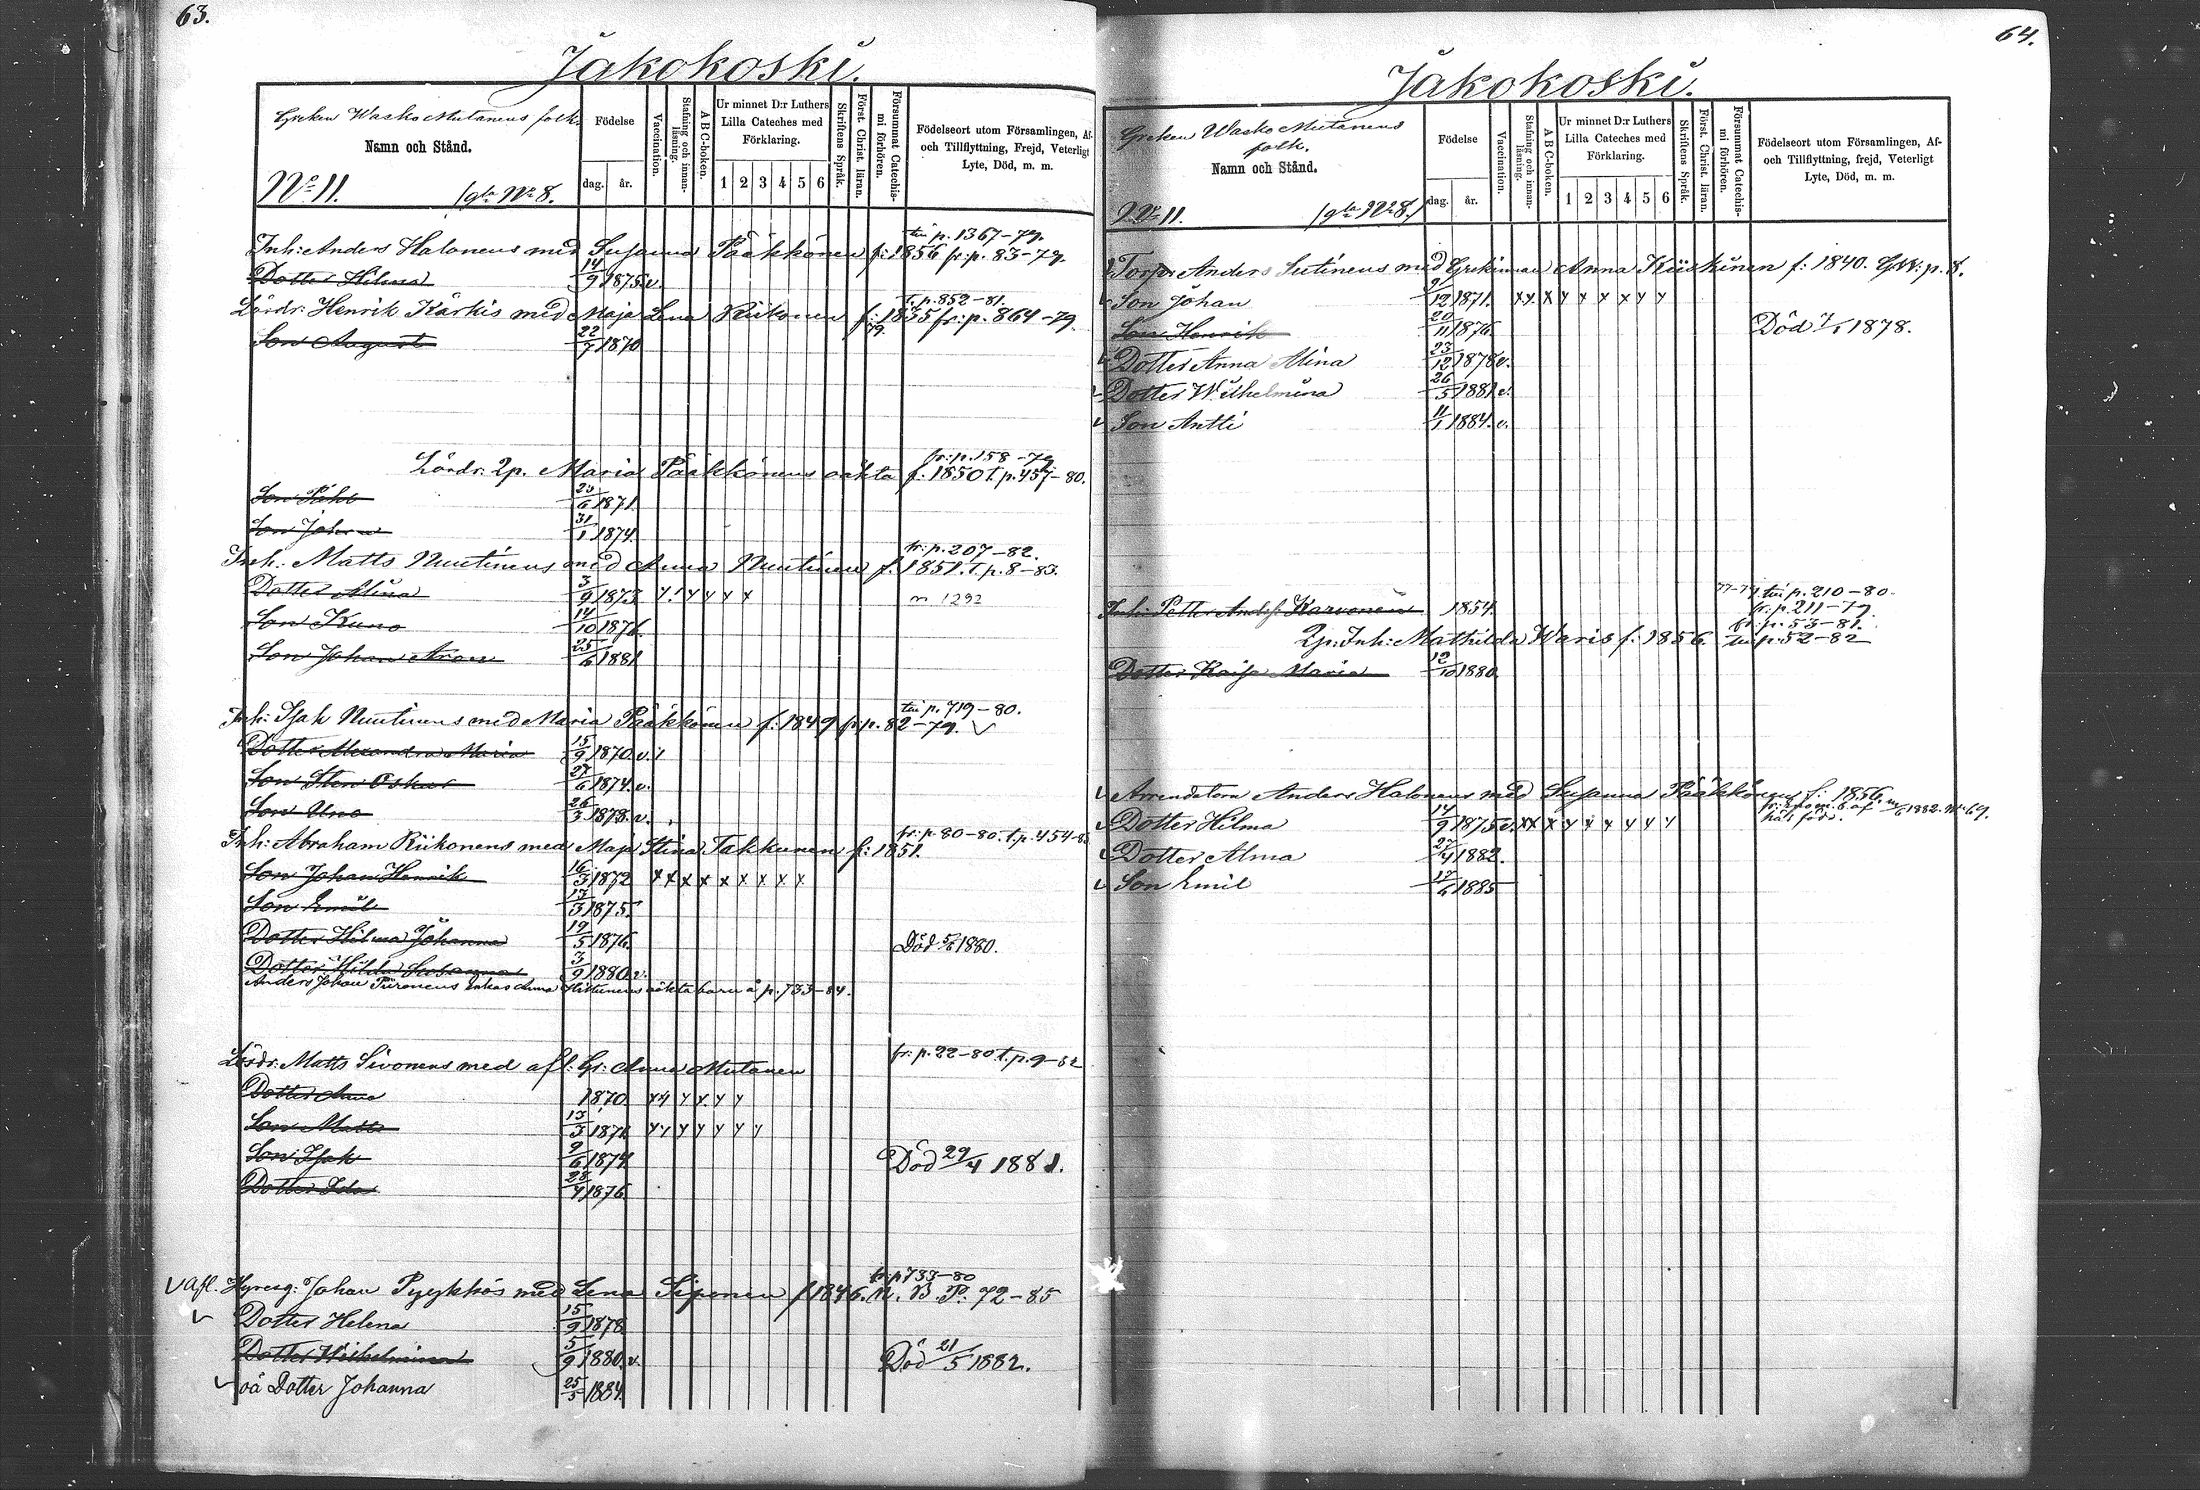 63.
Jakokoski.
Greken Wasko Mutanens folk.
Namn och Stånd.
No 11. /gla No 8.
Födelse
dag. år.
Vaccination.
Stafning och innanläsning.
A B C-boken.
Ur minnet D:r Luthers Lilla Cateches med Förklaring.
1 2 3 4 5 6
Skriftens Språk.
Först. Christ. läran.
Försummat Catechismi förhören.
Födelseort utom Församlingen, Af-
och Tillflyttning, Frejd, Veterligt
Lyte, Död, m. m.
till p. 1367-79.
Inh: Anders Halonens med Susanna Pääkkönen f: 1856 fr: p. 83-79.
Dotter Hilma 14/9 1875 v.
T. p. 852-81.
Lösdr: Henrik Kärkis med Maja Lena Riikonen f: 1835 fr: p. 864-79.
Son August 22/7 1870
fr: p. 158-79
Lösdr: 2p. Maria Pääkkönens oäkta f: 1850 t. p. 457-80.
Son Pehr 23/6 1871.
Son Johan 31/1 1874.
fr: p. 207-82.
Inh: Matts Nuutinens med Anna Nuutinen f: 1851. T. p. 8-83.
Dotter Alina 3/9 1873 m 1292
Son Kuno 14/10 1876.
Son Johan Aron 25/6 1881
till p. 719-80.
Inh: Isak Nuutinens med Maria Pääkkönen f: 1849 fr: p. 82-79.
Dotter Alexandra Maria 15/9 1870 v.
Son Sten Oskar 27/6 1874 v.
Son Uno 26/3 1878 v.
fr: p. 80-80. t. p. 454-8
Inh: Abraham Riikonens med Maja Stina Takkunen f: 1851.
Son Johan Henrik 16/3 1872 x x x x x x x x x
Son Emil 13/3 1875.
Dotter Hilma Johanna 19/5 1876. Död 5/6 1880.
Dotter Hilda Susanna 3/9 1880 v.
Anders Johan Piironens enkas Anna Hiltunens oäkta barn å p. 733-84.
fr: p. 22-80 t. p. 9-82
Lösdr: Matts Sivonens med afl: Gr: Anna Mutanen
Dotter Anna 1870
Son Matts 13/3 1871
Son Isak 9/6 1874 Död 29/4 1881.
Dotter Ida 28/4 1876.
fr: p 733-80
afl. Hyresg: Johan Pyykkös med Lena Siponen f 1846. N. B. P. 72-85
Dotter Helena 15/9 1878
Dotter Wilhelmina 5/9 1880 v. Död 21/5 1882.
oä Dotter Johanna 25/5 1884.
64.
Jakokoski.
Greken Wasko Mutanens
folk.
Namn och Stånd.
No 11. /gla No 8./
Födelse
dag. år.
Vaccination.
Stafning och innanläsning.
A B C-boken.
Ur minnet D:r Luthers Lilla Cateches med Förklaring.
1 2 3 4 5 6
Skriftens Språk.
Först. Christ. läran.
Försummat Catechismi förhören.
Födelseort utom Församlingen, Af-
och Tillflyttning, frejd, Veterligt
Lyte, Död, m. m.
Torp: Anders Sutinens med Grekinnan Anna Kiiskinen f: 1840. p. 8.
Son Johan 21/12 1871. x x x x x x x x x
Son Henrik 20/11 1876 Död 7/1 1878.
Dotter Anna Alina 23/12 1878 v.
Dotter Wilhelmina 26/5 1881 v.
Son Antti 11/1 1884. v.
77-79. till p. 210-80.
Inh: Petter Karvonen 1854 fr: p. 211-79.
fr: p. 53-81.
2p: Inh: Mathilda Waris f: 1856. till p. 52-82
Dotter Kaisa Maria 12/10 1880
Arrendatorn Anders Halonens med Susanna Pääkkönens f: 1856.
Dotter Hilma 14/9 1875 v. x x x x x x x x x 1882. No 69.
Dotter Alma 27/4 1882.
Son Emil 17/6 1885